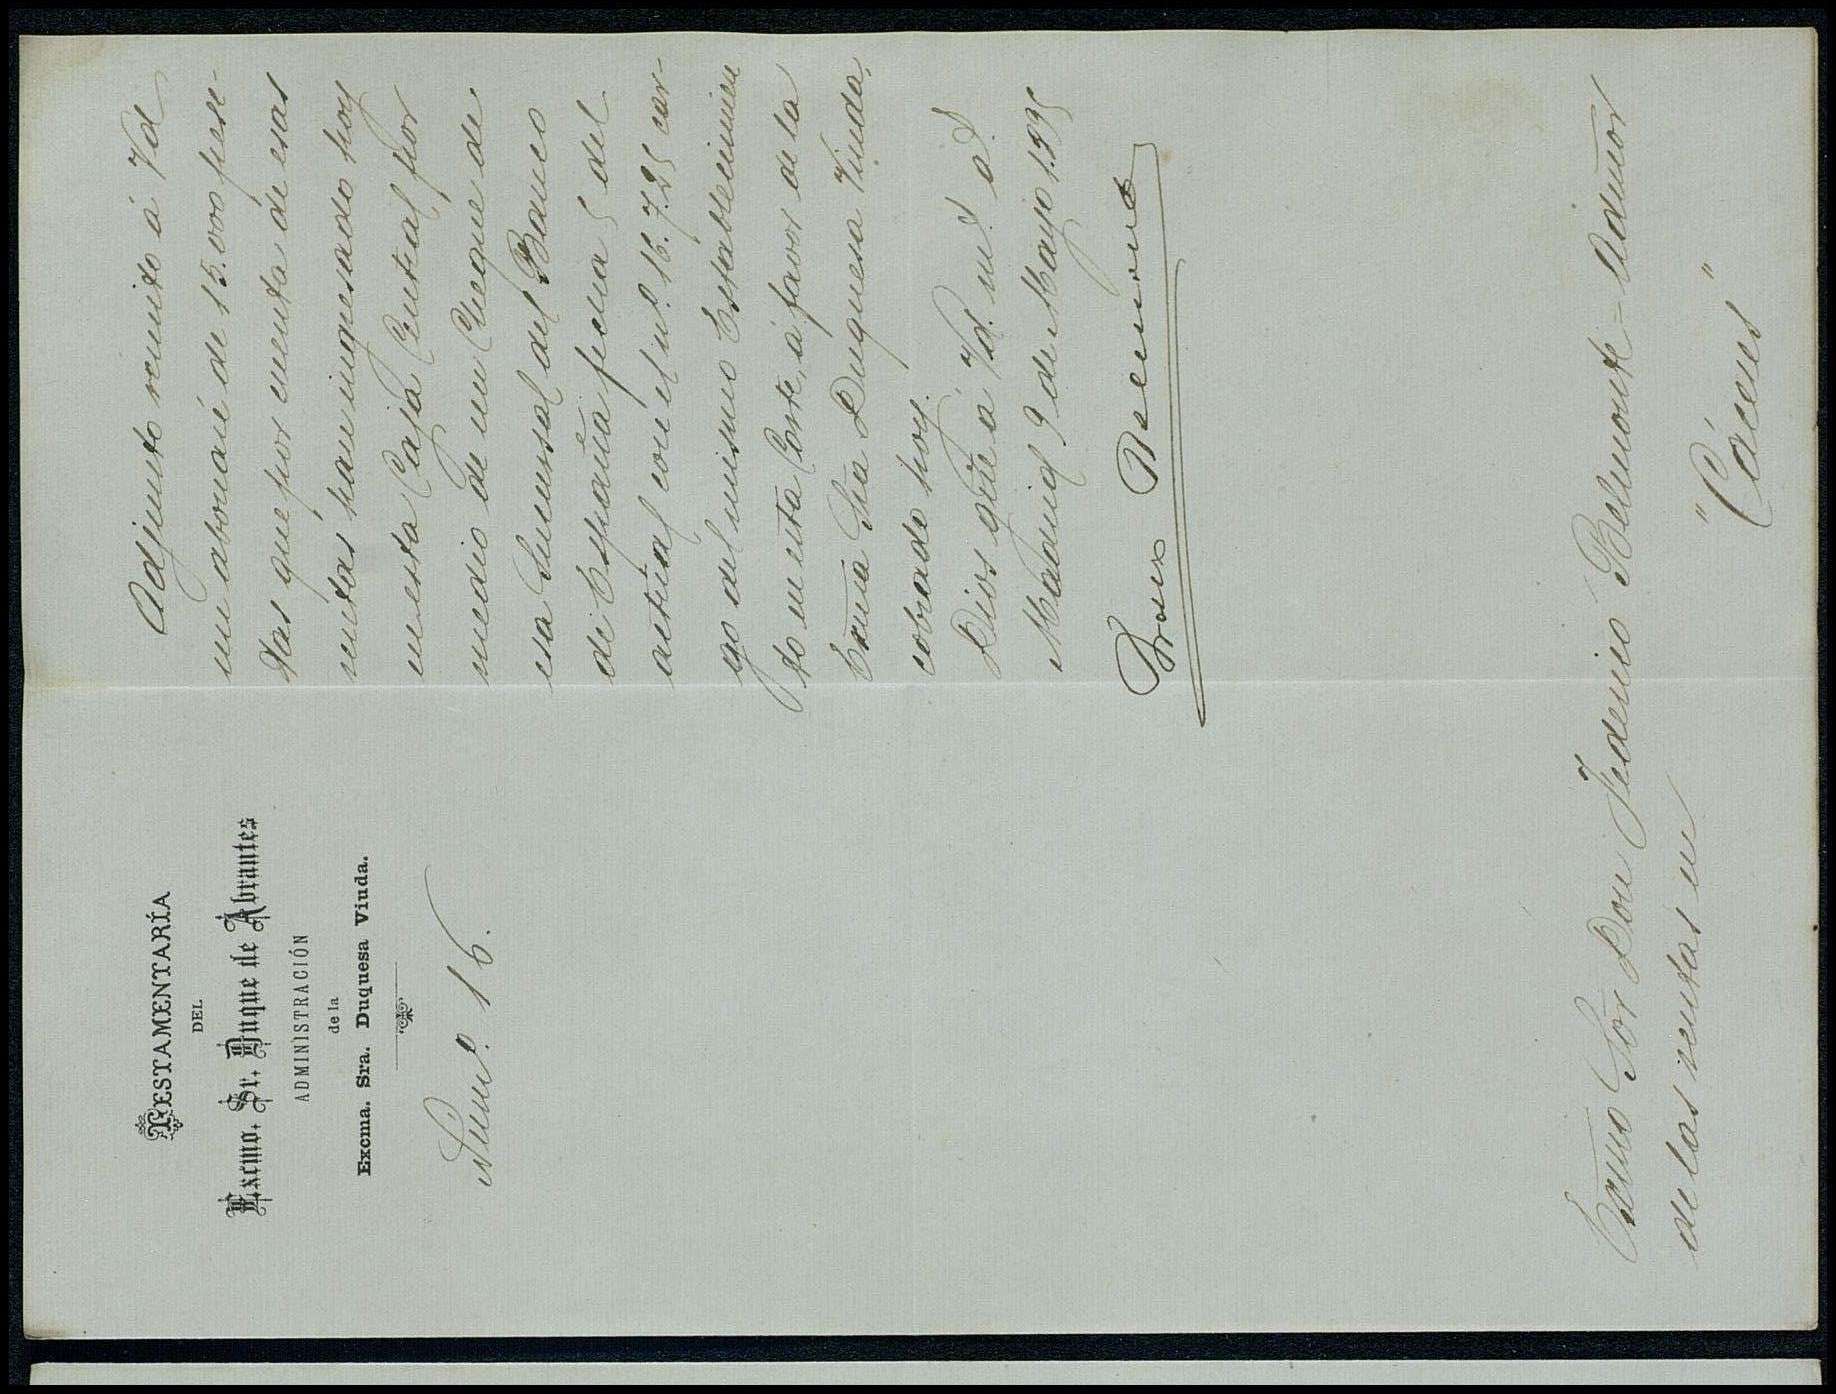 TESTAMENTARÍA
DEL
Excmo. Sr. Duque de Abrantes
ADMINISTRACIÓN
de la
Excma. Sra. Duquesa Viuda.
Num.º 16.
Adjunto remito á Vd
un abonaré de 15.000 pese-
tas que por cuenta de esas
rentas han ingresado hoy
en esta Caja Central por
medio de un Cheque de
esa Sucursal del Banco
de España fecha 5 del
actual con el nº. 16.725 car-
go del mismo Establecimien
to en esta Corte, á favor de la
Exma Sra Duquesa Viuda,
cobrado hoy.
Dios gue á Vd. m.s a.s
Madrid 9 de Mayo 1895
Belmonte
Excmo Sor Don Federico Belmonte = Admor
de las rentas en
"Cáceres"